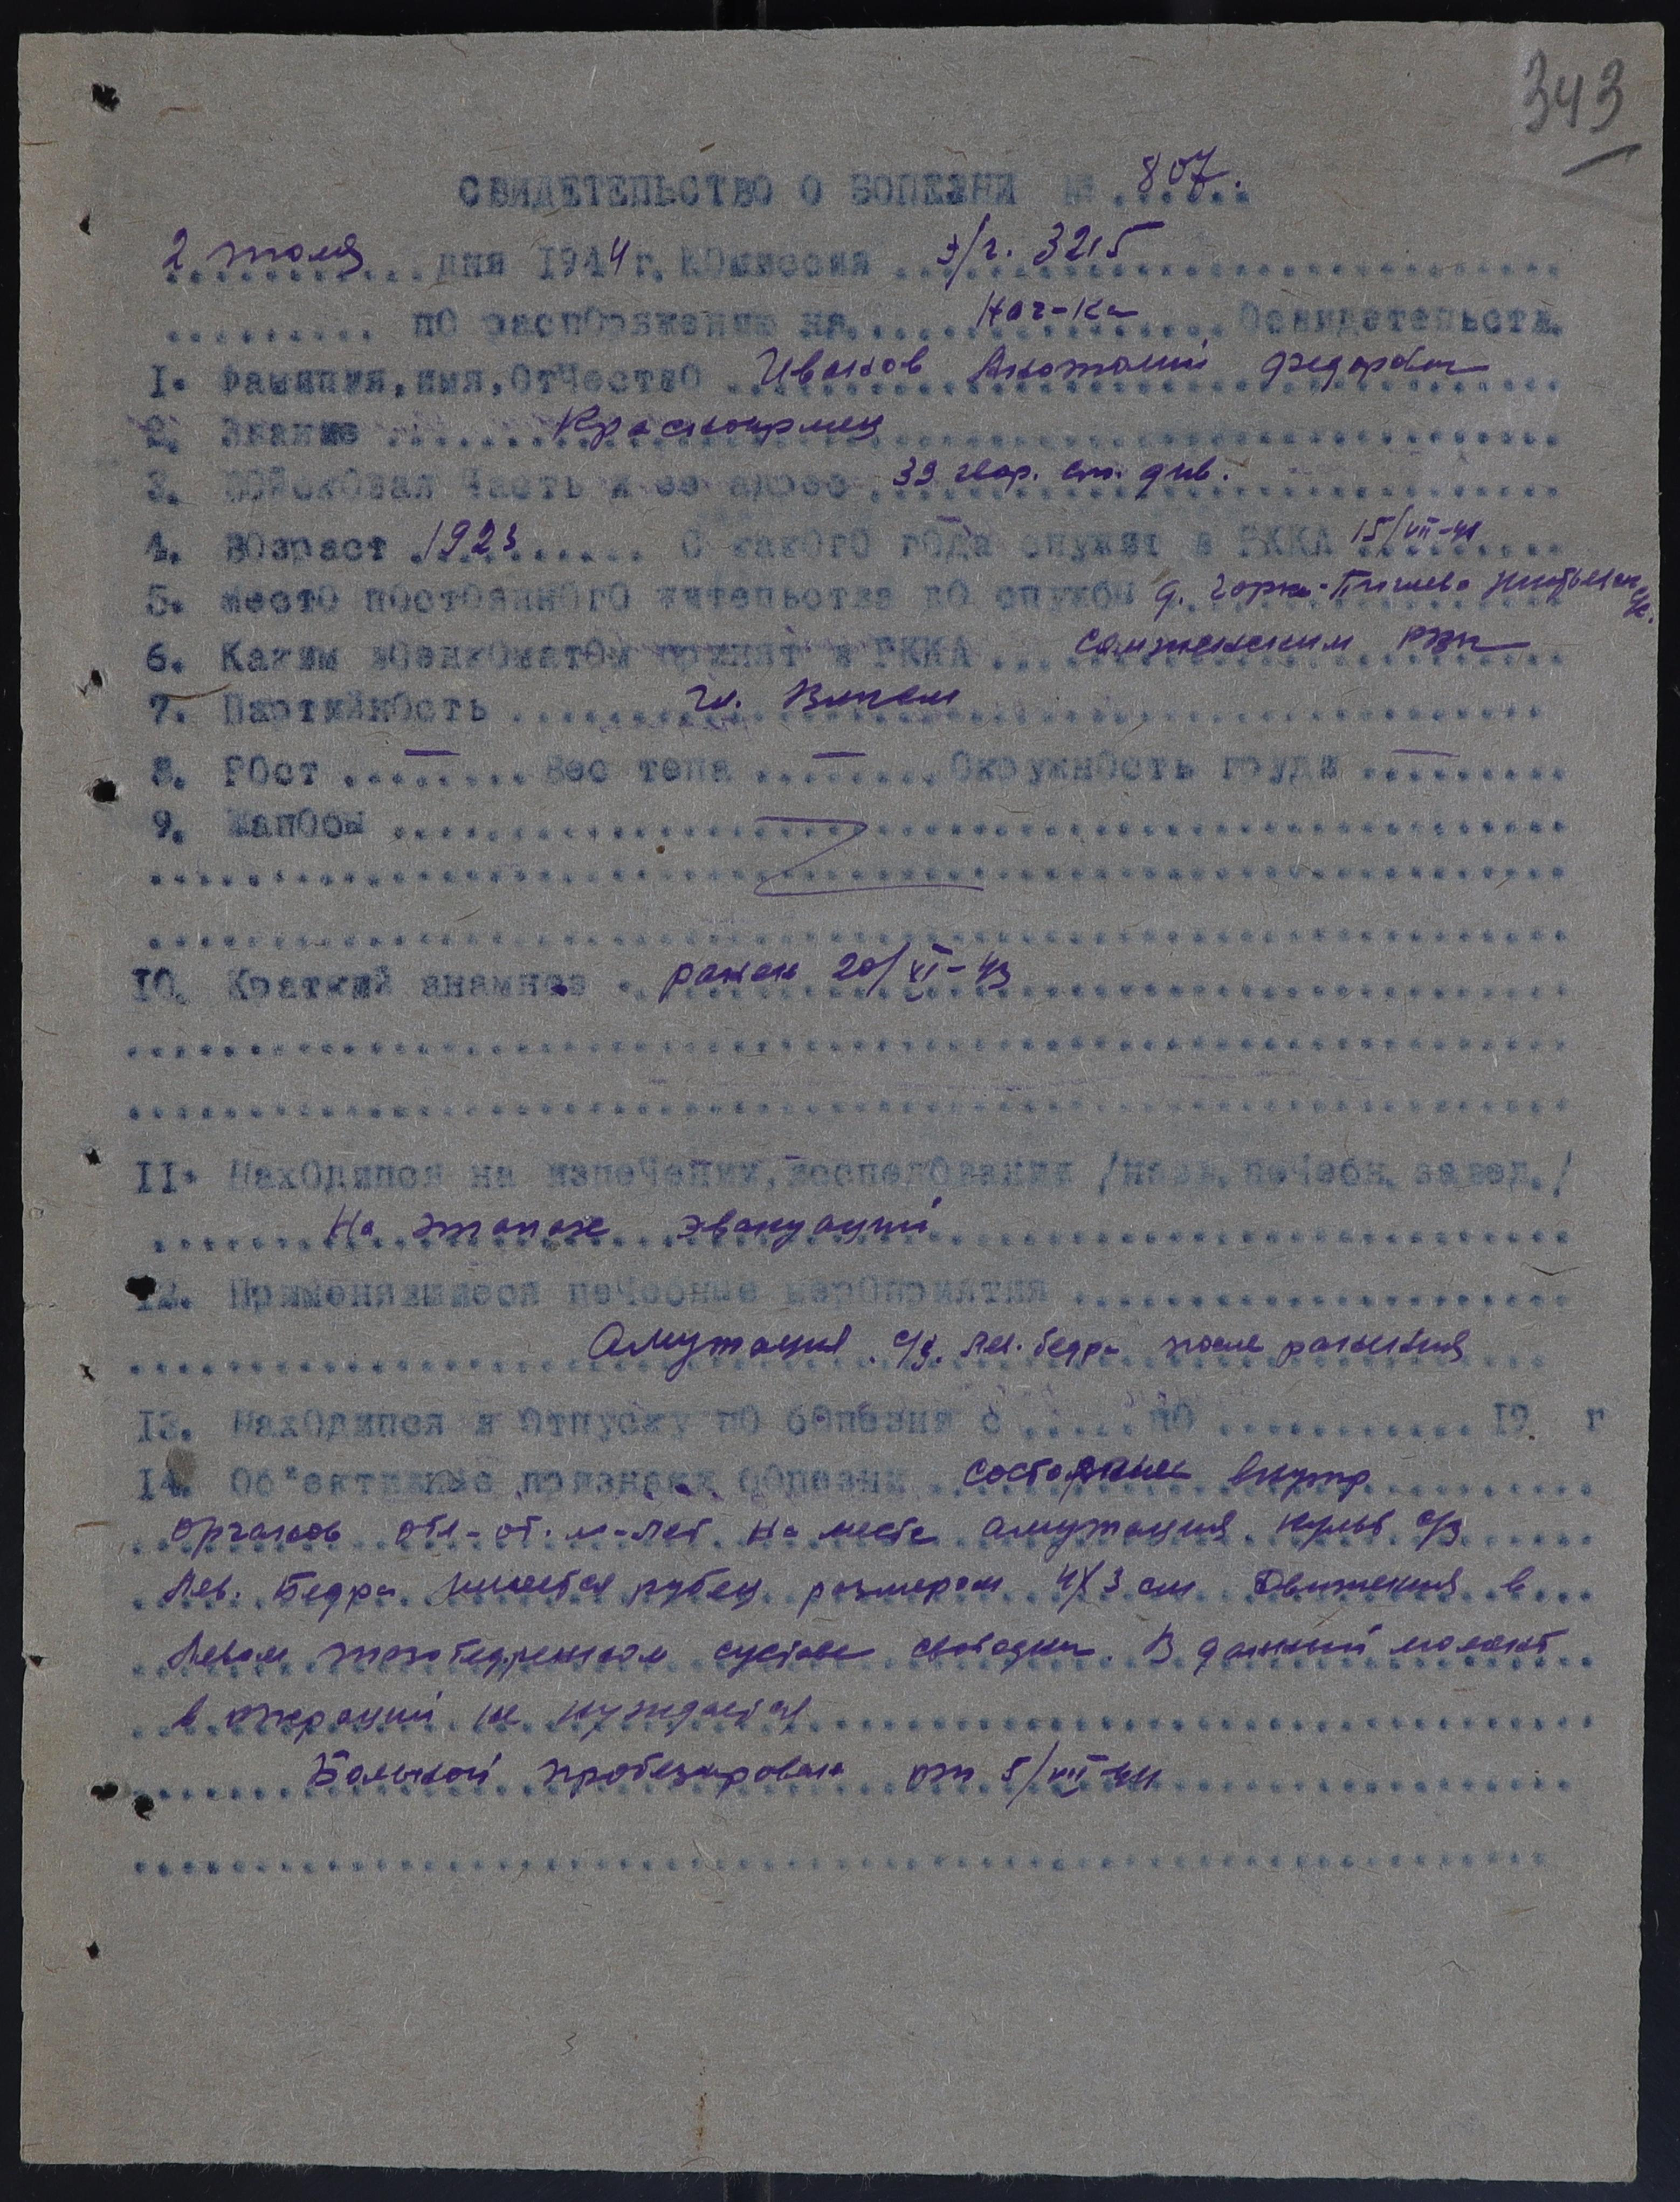 343
СВИДЕТЕЛЬСТВО О БОЛЕЗНИ № 807.
2 июля дня 1944 г. Комиссия э/г. 3215
по распоряжению на Нач-ка Освидетельств.
1. Фамилия, имя, отчество Иванов Анатолий Федорович
2. Звание Красноармеец
3. Войсковая часть и ее адрес 39 гвар. стр. див.
4. Возраст 1923 С какого года служит в РККА 15/VII-41
5. Место постоянного жительства до службы д. Горка-
6. Каким военкоматом принят в РККА Сямженским РВК
7. Партийность чл. ВЛКСМ
8. Рост — Вес тела — Окружность груди —
9. Жалобы
10. Краткий анамнез ранен 20/XI-43
11. Находился на излечении, исследовании /назв. лечебн. завед./
На этапах эвакуации
12. Применявшиеся лечебные мероприятия
Ампутация с/3 лев. бедра после ранения
13. Находился в отпуску по болезни с по 19 г
14. Об"ективные признаки болезни Состояние внутр
органов отк-от. м-лет. На месте ампутация культ с/3
лев. Бедра имеется рубец размером 4х3 см Движения в
левом тазобедренном суставе свободны. В данный момент
в операции не нуждается
Больной протезирован от 5/VII-44